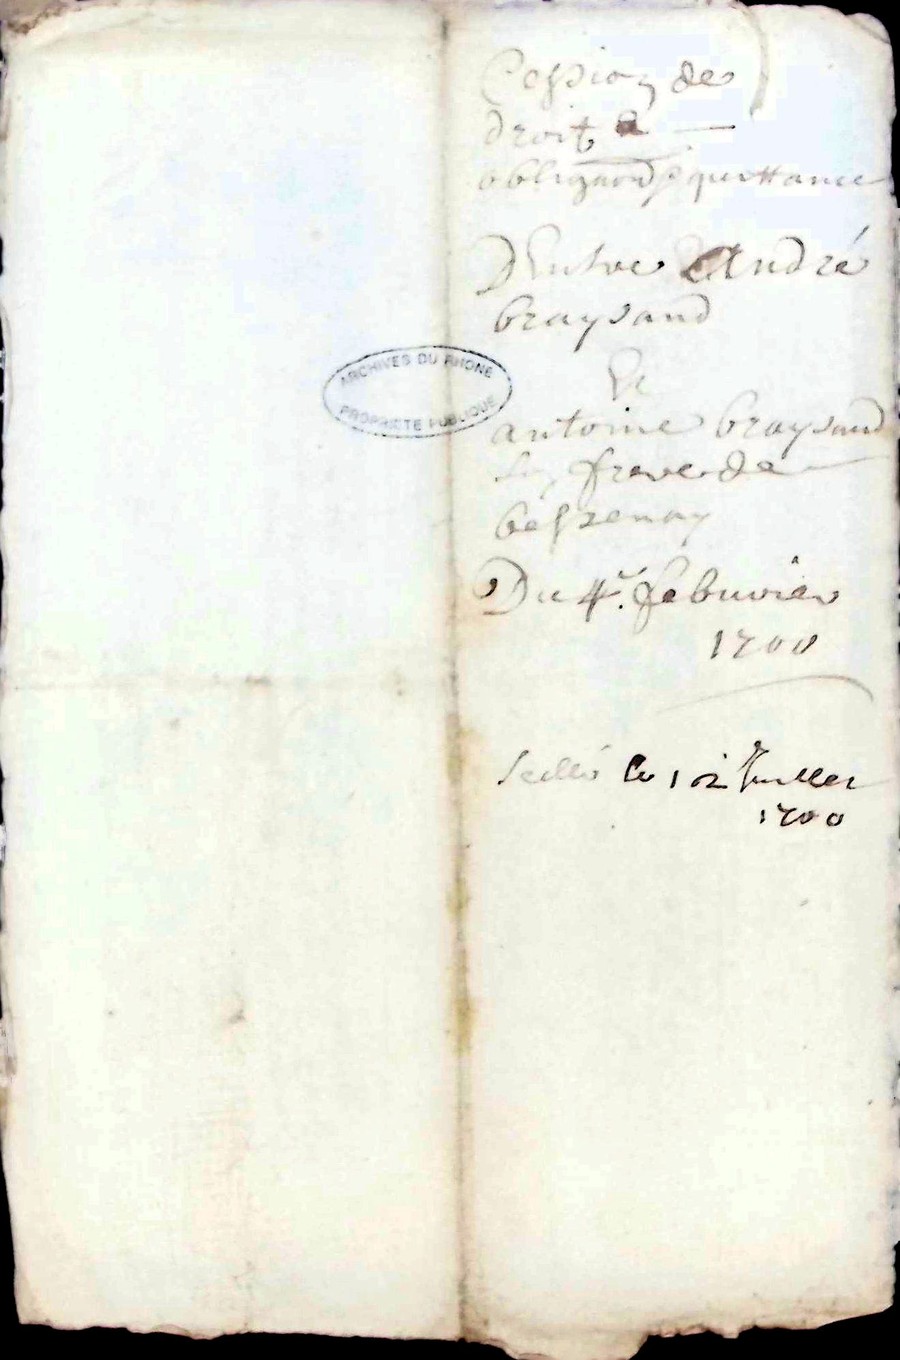 Cession de
droit &
obligaon & quittance
D'Entre André
braysand
Et
ARCHIVES DU RHONE
PROPRIETE PUBLIQUE
antoine braysand
son frere de
bessenay
Du 4e. febuvier
1700
Scellé le 12 Juillet
1700